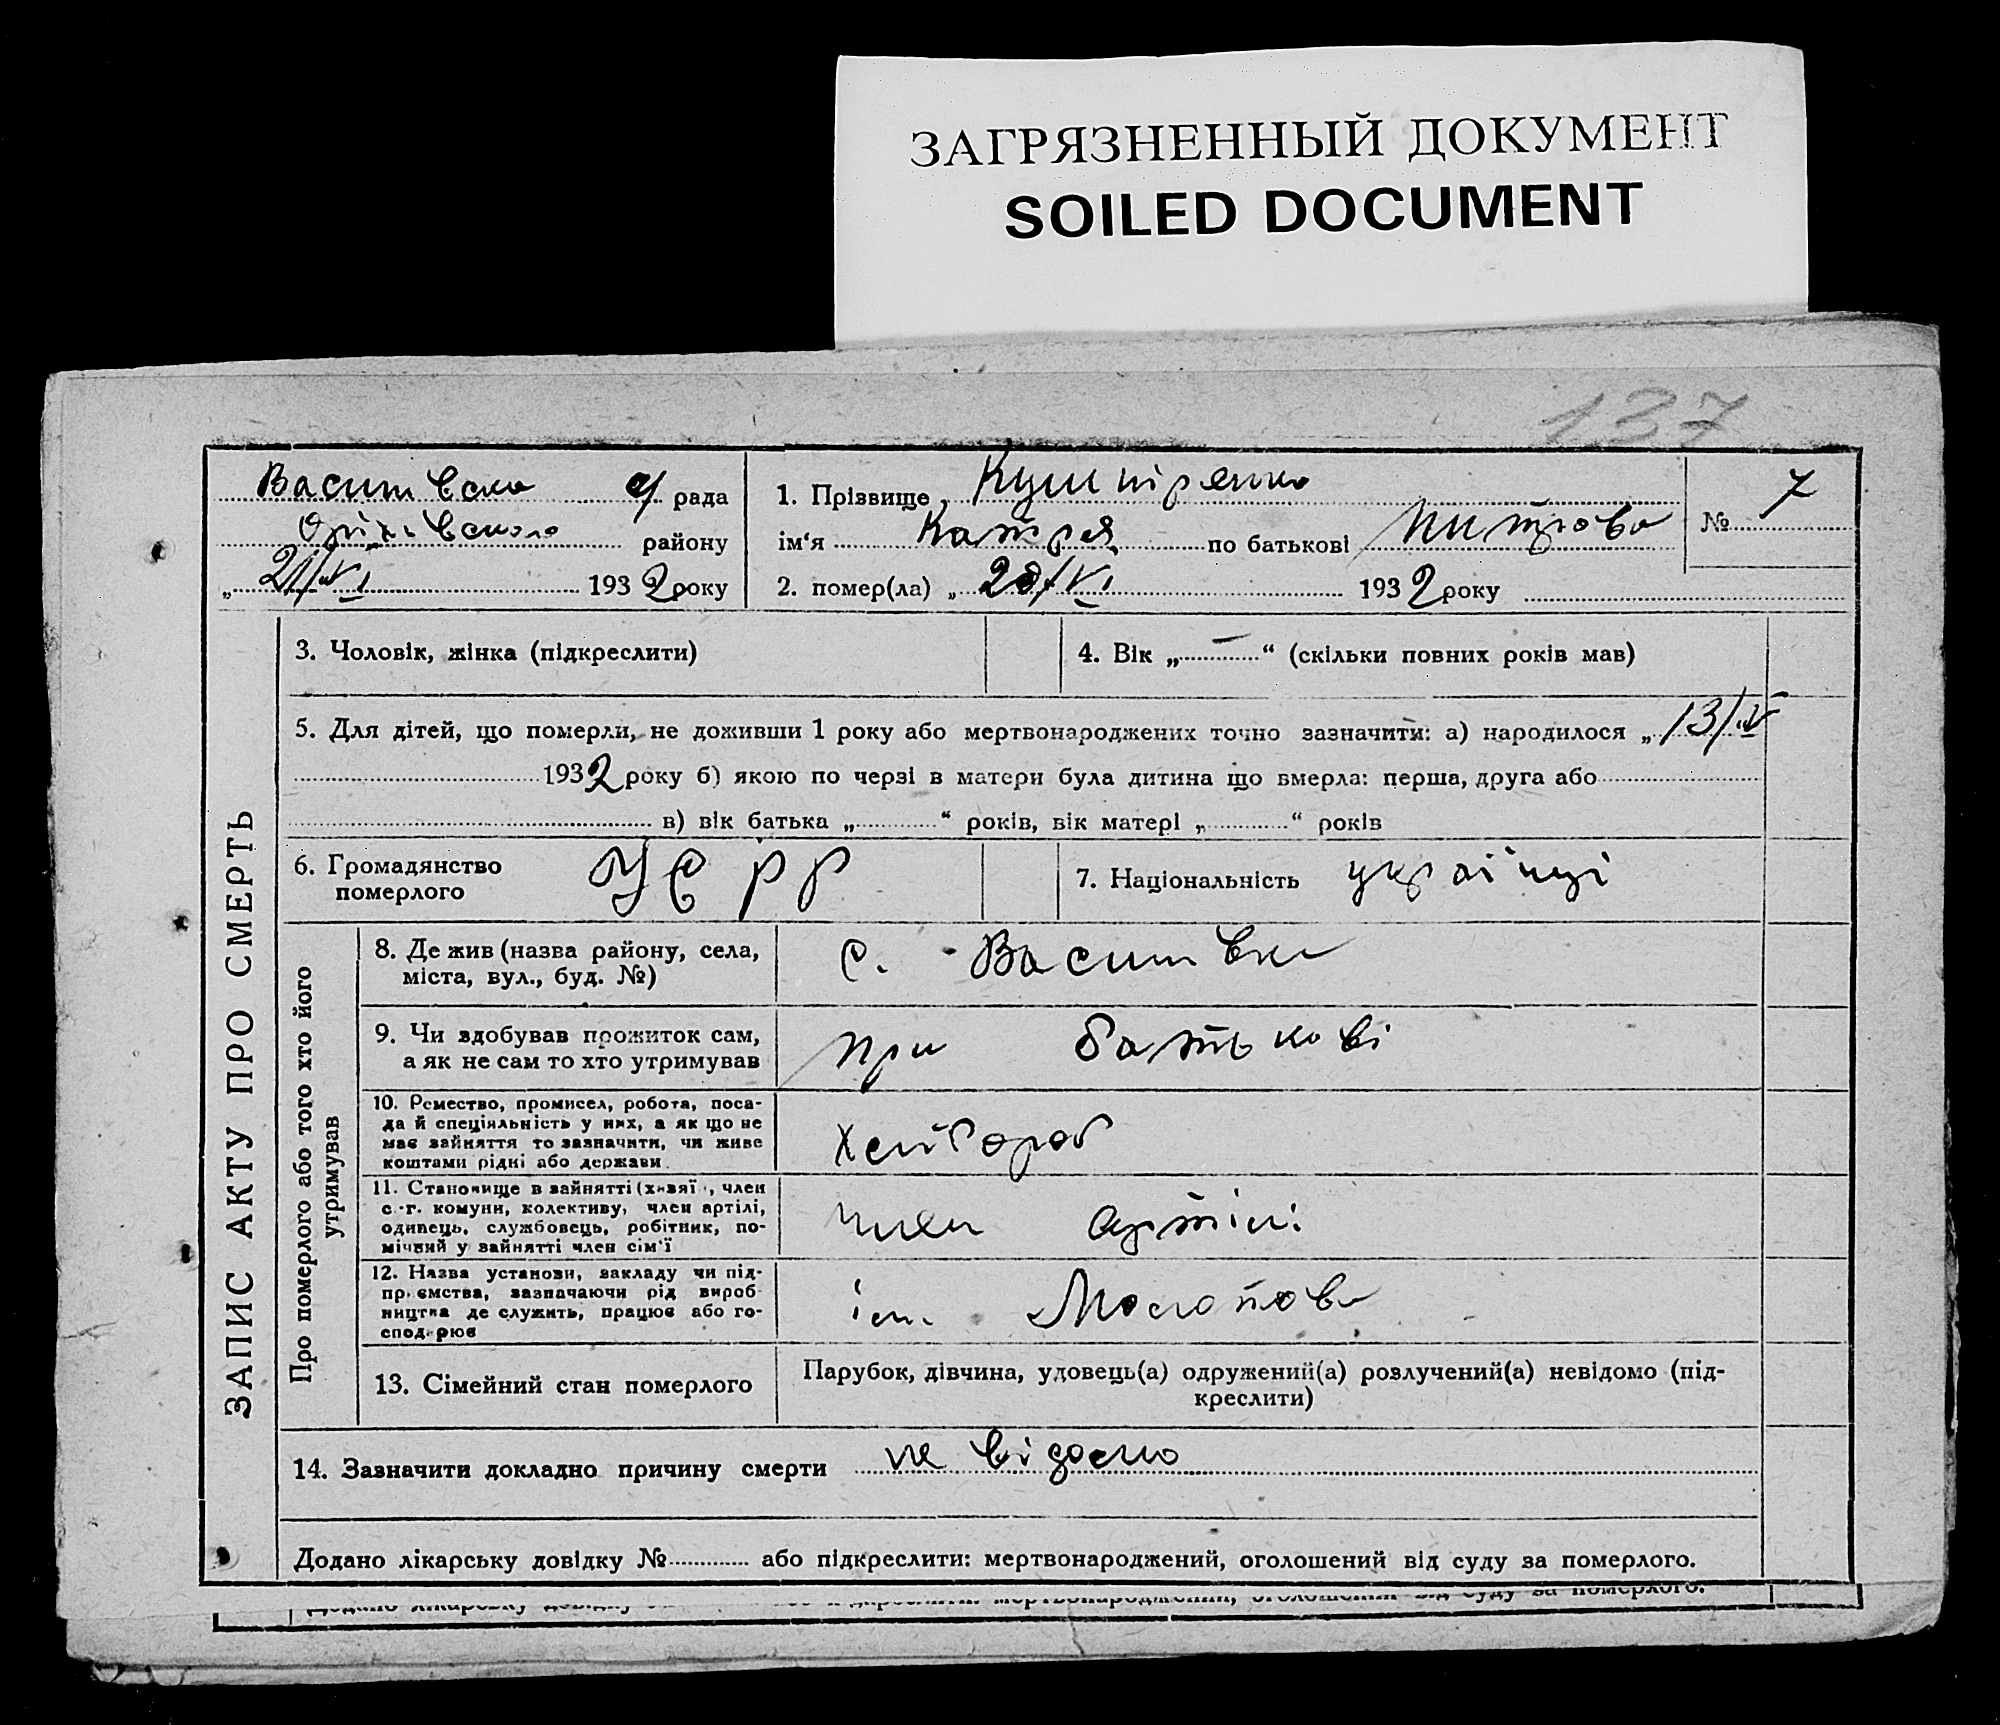 ЗАГРЯЗНЕННЫЙ ДОКУМЕНТ
SOILED DOCUMENT
137
с/ рада
Оріхівського району
„21/VI 1932 року
1. Прізвище Кушніренко
ім‘я Катря по батькові
№ 7
2. помер(ла) „20/VI 1932 року
ЗАПИС АКТУ ПРО СМЕРТЬ
3. Чоловік, жінка (підкреслити)
4. Вік „—“ (скільки повних років мав)
5. Для дітей, що померли, не доживши 1 року або мертвонароджених точно зазначити: а) народилося „13/IV
1932 року б) якою по черзі в матери була дитина що вмерла: перша, друга або
в) вік батька „ “ років, вік матері „ “ років
6. Громадянство
померлого
УСРР
7. Національність українці
Про померлого або того хто його
утримував
8. Де жив (назва району, села,
міста, вул., буд. №)
с.
9. Чи здобував прожиток сам,
а як не сам то хто утримував
при батькові
10. Ремество, промисел, робота, поса-
да й спеціяльність у них, а як що не
має зайняття то зазначити, чи живе
коштами рідні або держави.
хлібороб
11. Становище в зайнятті (хазяї , член
с.-г. комуни, колективу, член артілі,
одинець, службовець, робітник, по-
мічний у зайнятті член сім'ї
член артілі
12. Назва установи, закладу чи під-
приємства, зазначаючи рід вироб-
ництва де служить, працює або го-
сподарює
ім. Молотова
13. Сімейний стан померлого
Парубок, дівчина, удовець(а) одружений(а) розлучений(а) невідомо (під-
креслити)
14. Зазначити докладно причину смерти не відомо
Додано лікарську довідку № або підкреслити: мертвонароджений, оголошений від суду за померлого.